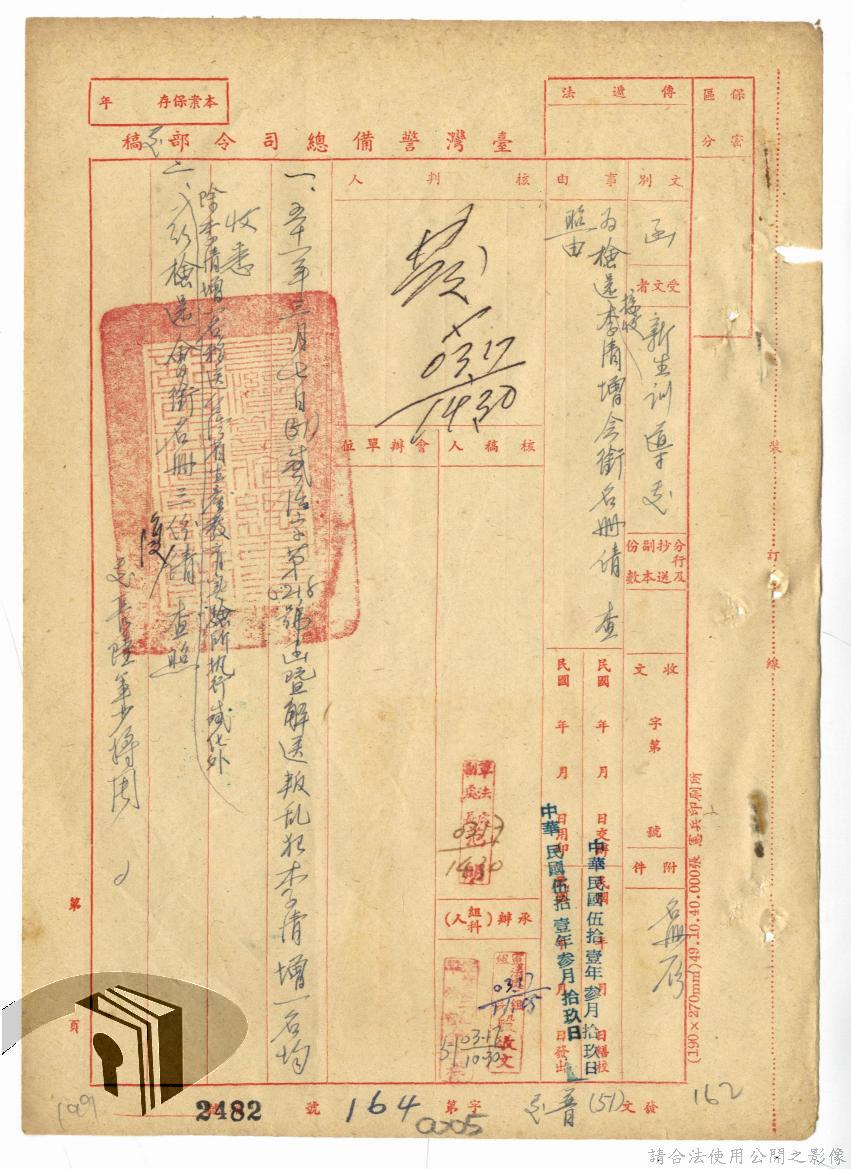 保密
區分
傳遞法
本案保存　年
臺灣警備總司令部稿
文別
函
受文者
新生訓導處
分行及抄送副本份數
收文
字第
號
附件
名冊
事由
為檢送李清增會銜名冊請查
照由
民國　年　月　日交辦
民國　年　月　日繕校
民國　年　月　日用印
民國　年　月　日發出
中華民國伍拾壹年參月拾玖日
中華民國伍拾壹年參月拾玖日
核判人
發
03.17
1430
會辦單位
核稿人
軍法處
副處長
03.17
1430
承辦（組科人）
03.17
03.17
10.30
一、五十一年三月七日(51)字第0218號函暨解送叛亂犯李清增一名均
收悉
除李清增一名移送台灣省生產教育實驗所執行感化外
二、檢送會銜名冊三份請查照
處長陸軍少將周
第　頁
裝
訂
線
(190×270mm)49.10.40.000張 憲兵印刷所
發文
(51)
字第
164
號
2482
0005
162
199
請合法使用公開之影像